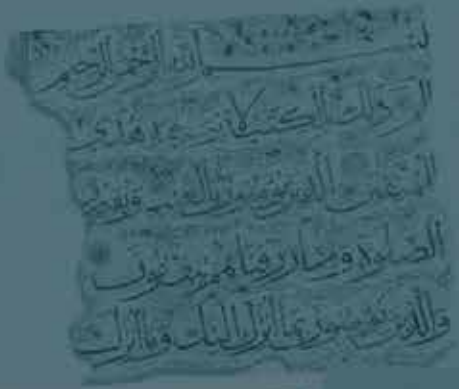 بسم الله الرحمن الرحيم
الم ذلك الكتب لا ريب فيه هدى
للمتقين الذين يؤمنون بالغيب ويقيمون
الصلوة ومما رزقناهم ينفقون
والذين يؤمنون بما أنزل إليك وما أنزل